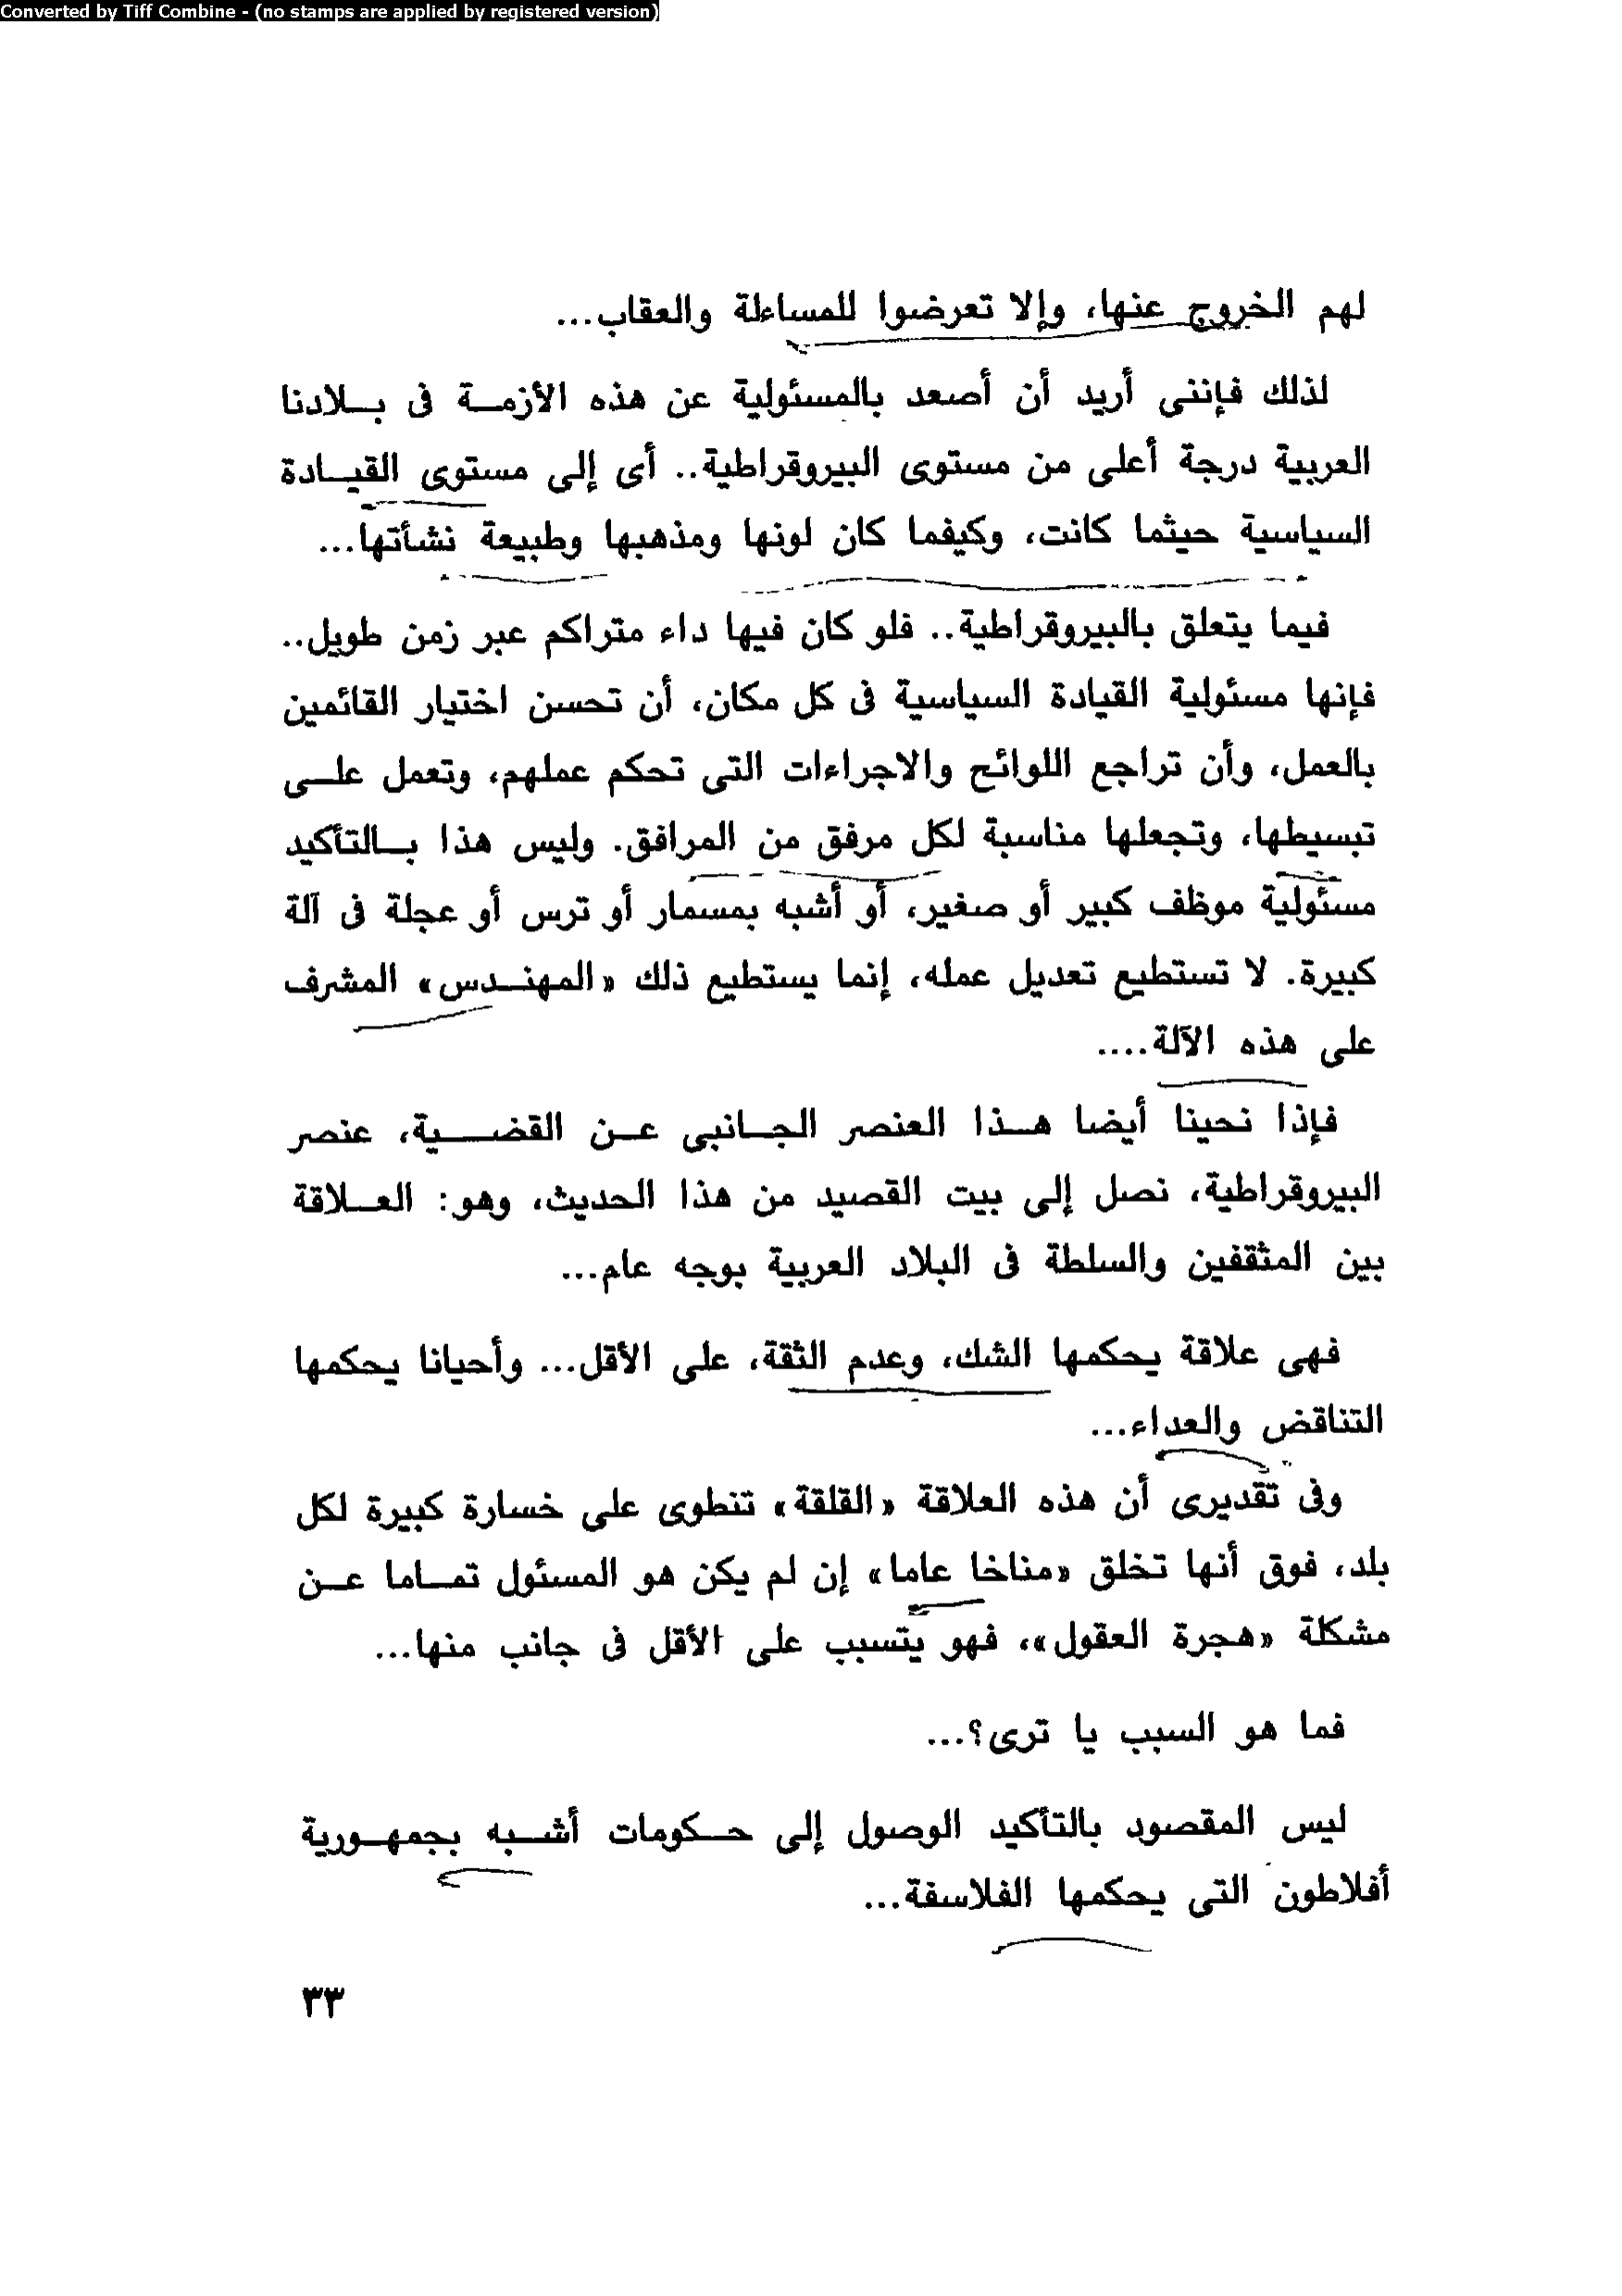 Converted by Tiff Combine - (no stamps are applied by registered version)
لهم الخروج عنها، وإلا تعرضوا للمساءلة والعقاب...
لذلك فإننى أريد أن أصعد بالمسئولية عن هذه الأزمـة فى بـلادنا
العربية درجة أعلى من مستوى البيروقراطية.. أى إلى مستوى القيـادة
السياسية حيثما كانت، وكيفما كان لونها ومذهبها وطبيعة نشأتها...
فيما يتعلق بالبيروقراطية.. فلو كان فيها داء متراكم عبر زمن طويل..
فإنها مسئولية القيادة السياسية فى كل مكان، أن تحسن اختيار القائمين
بالعمل، وأن تراجع اللوائح والاجراءات التى تحكم عملهم، وتعمل علـى
تبسيطها، وتجعلها مناسبة لكل مرفق من المرافق. وليس هذا بـالتأكيد
مسئولية موظف كبير أو صغير، أو أشبه بمسمار أو ترس أو عجلة فى آلة
كبيرة. لا تستطيع تعديل عمله، إنما يستطيع ذلك «المهنـدس» المشرف
على هذه الآلة....
فإذا نحينا أيضا هـذا العنصر الجـانبى عـن القضـية، عنصر
البيروقراطية، نصل إلى بيت القصيد من هذا الحديث، وهو: العـلاقة
بين المثقفين والسلطة فى البلاد العربية بوجه عام...
فهى علاقة يحكمها الشك، وعدم الثقة، على الأقل... وأحيانا يحكمها
التناقض والعداء...
وفى تقديرى أن هذه العلاقة «القلقة» تنطوى على خسارة كبيرة لكل
بلد، فوق أنها تخلق «مناخا عاما» إن لم يكن هو المسئول تمـاما عـن
مشكلة «هجرة العقول»، فهو يتسبب على الأقل فى جانب منها...
فما هو السبب يا ترى؟...
ليس المقصود بالتأكيد الوصول إلى حـكومات أشـبه بجمهـورية
أفلاطون التى يحكمها الفلاسفة...
٣٣